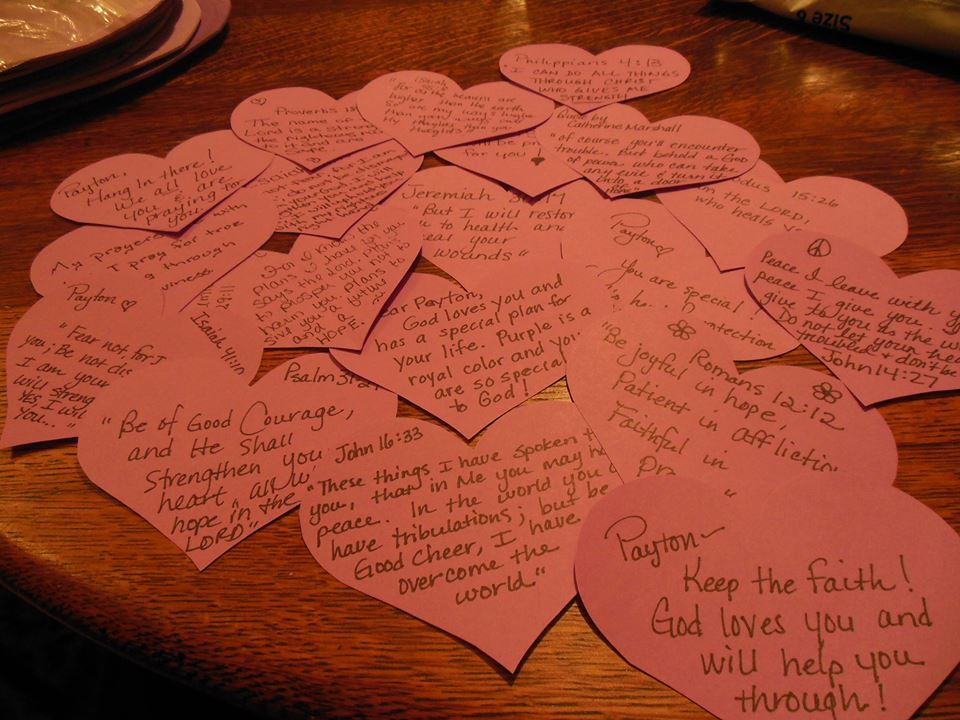 Size 6
Philippians 4:13
"I CAN DO ALL THINGS
THROUGH CHRIST
WHO GIVES ME
STRENGTH
Isaiah
55:9
as the heavens are
higher than the earth
So are my ways higher
than your ways and
My thoughts than your
thoughts"
Proverbs 18
The name of
Lord is a stron
the righteous
it and are
Safe
Quote by
Catherine Marshall
"of course you'll encounter
trouble. But behold a God
of power who can take
any evil & turn it
into a door
hope"
for you!
Payton,
Hang In there!
We all love
you & are
praying for
you
for I am
15:26
the LORD,
who heals
Jeremiah
"But I will restor
u to health and
eal your
wounds"
My prayers
with
I pray for
true
through
Payton
You are special!
rotection
For I know the
plans I have for you
says the Lord, plans
to prosper you not
harm you, plans to
give you a future
and a
HOPE.
Isaiah 41:10
Peace I leave with y
peace I give you.
give to you as the w
Do not let your hea
troubled & don't be
John 14:27
Payton
"Fear not, for I
you; Be not dis
I am your
will streng
Yes I will
You..."
ear Payton,
God loves you and
has a special plan for
your life. Purple is a
royal color and you
are so special
to God!
Psalm 31:2
"Be of Good Courage,
and He Shall
Strengthen you
heart, all
hope in the
LORD"
"Romans 12:12
Be joyful in hope,
Patient in afflictin
Faithful in
Pra
"
John 16:33
"These things I have spoken t
you, that in Me you may h
peace. In the world you
have tribulations; but be
Good Cheer, I have
overcome the
world."
Payton~
Keep the faith!
God loves you and
will help you
through!